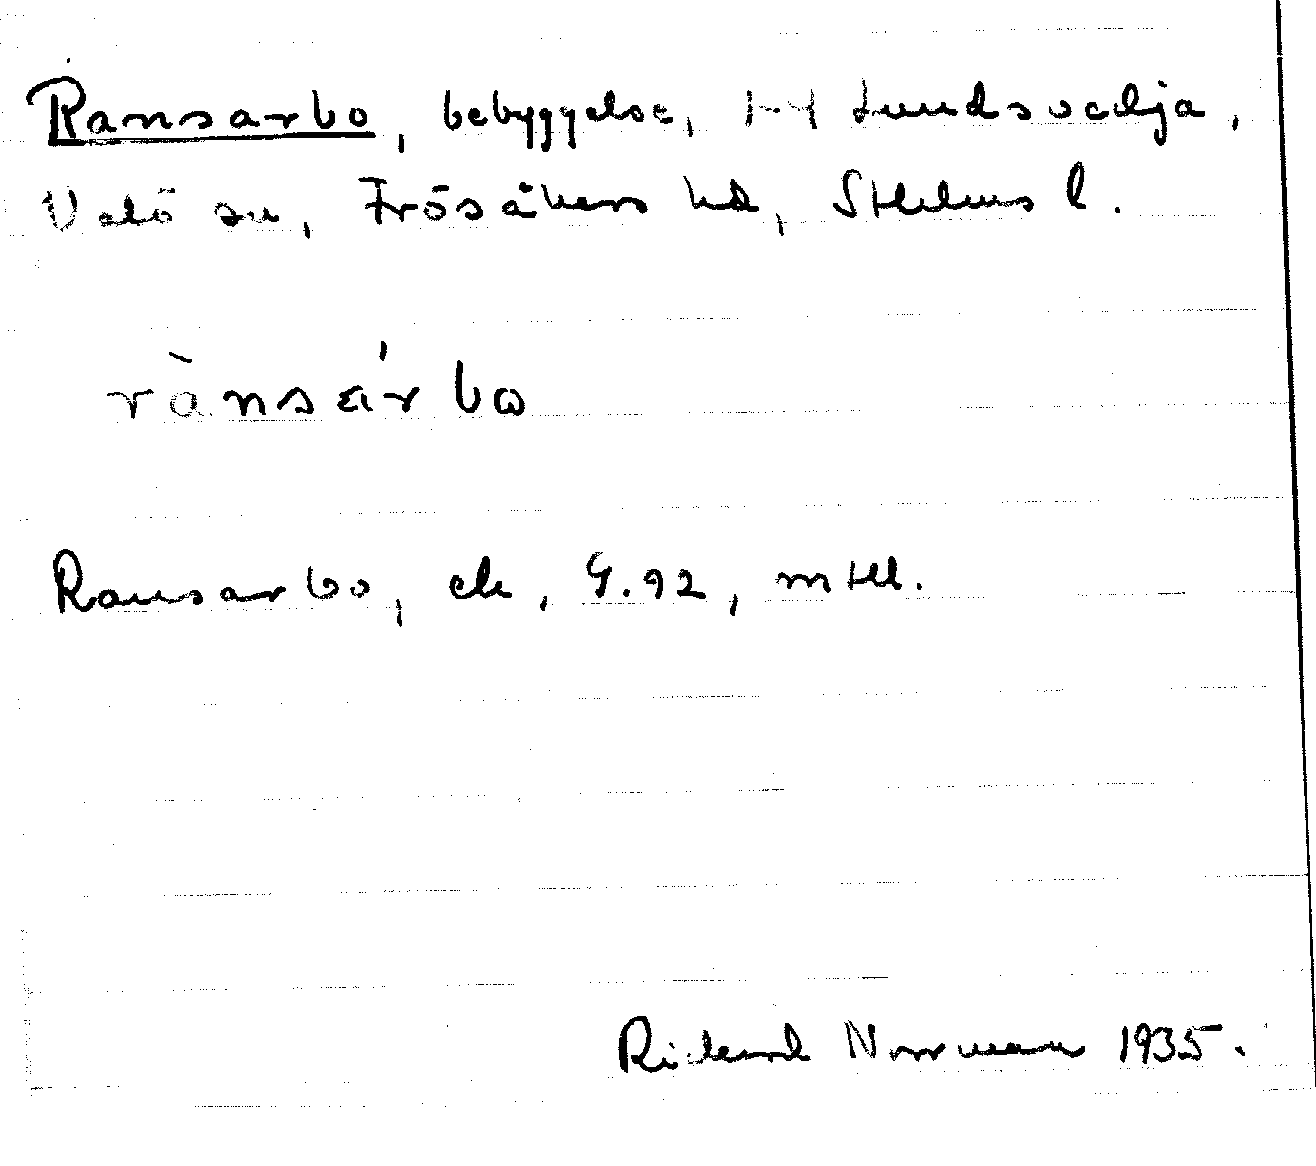 Ransarbo, bebyggelse, 1-4 Lundsvedja,
Valö sn, Frösåkers hd, Sthlms l.
rànsárbo
Ransarbo, ek, G.92, mtll.
Rickard Norrman 1935.